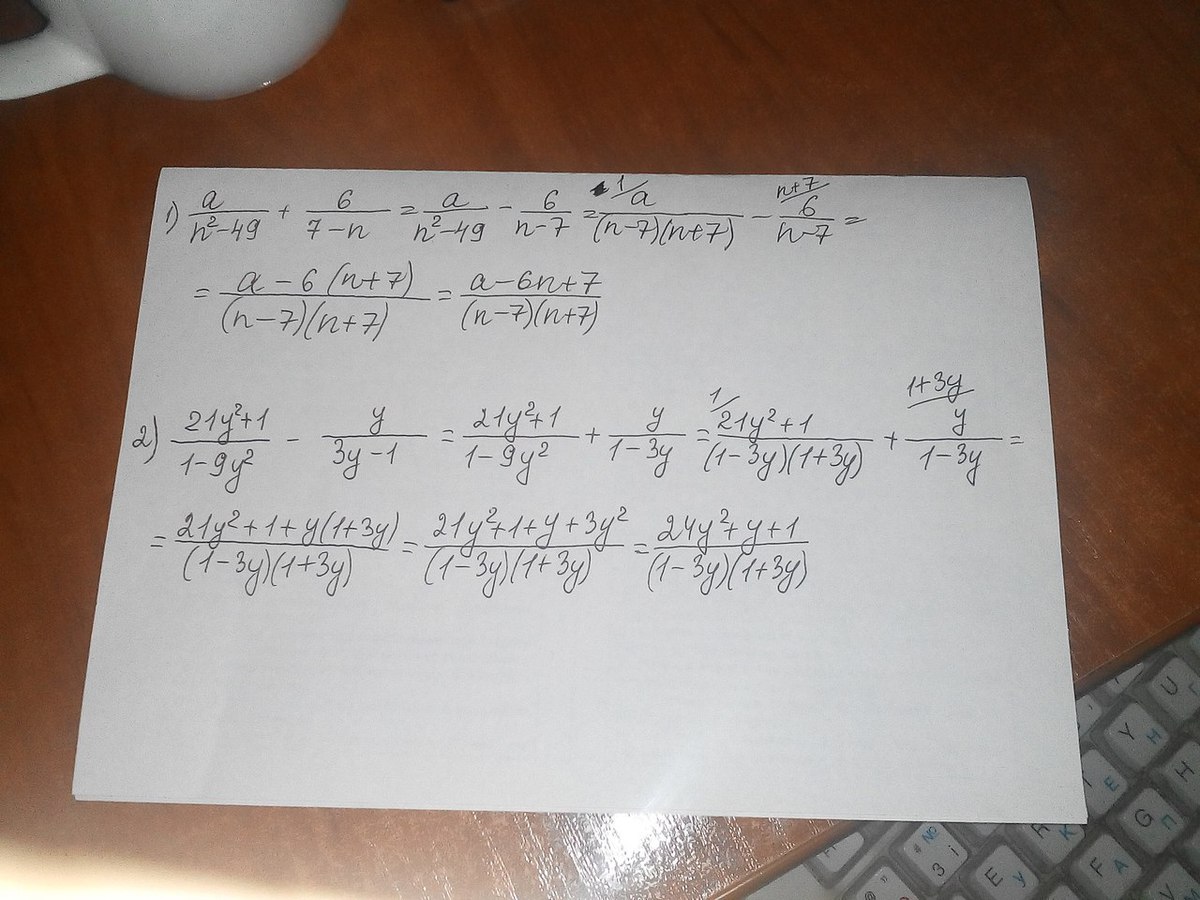 1) a/(n²-49) + 6/(7-n) = a/(n²-49) - 6/(n-7) = ¹/a/((n-7)(n+7)) - ⁿ⁺⁷/6/(n-7) =
= (a-6(n+7))/((n-7)(n+7)) = (a-6n+7)/((n-7)(n+7))
2) (21y²+1)/(1-9y²) - y/(3y-1) = (21y²+1)/(1-9y²) + y/(1-3y) = ¹/(21y²+1)/((1-3y)(1+3y)) + ¹⁺³ʸ/y/(1-3y) =
= (21y²+1+y(1+3y))/((1-3y)(1+3y)) = (21y²+1+y+3y²)/((1-3y)(1+3y)) = (24y²+y+1)/((1-3y)(1+3y))
U
Y Н
Е H
К G П
№ 3 і F А
E У V